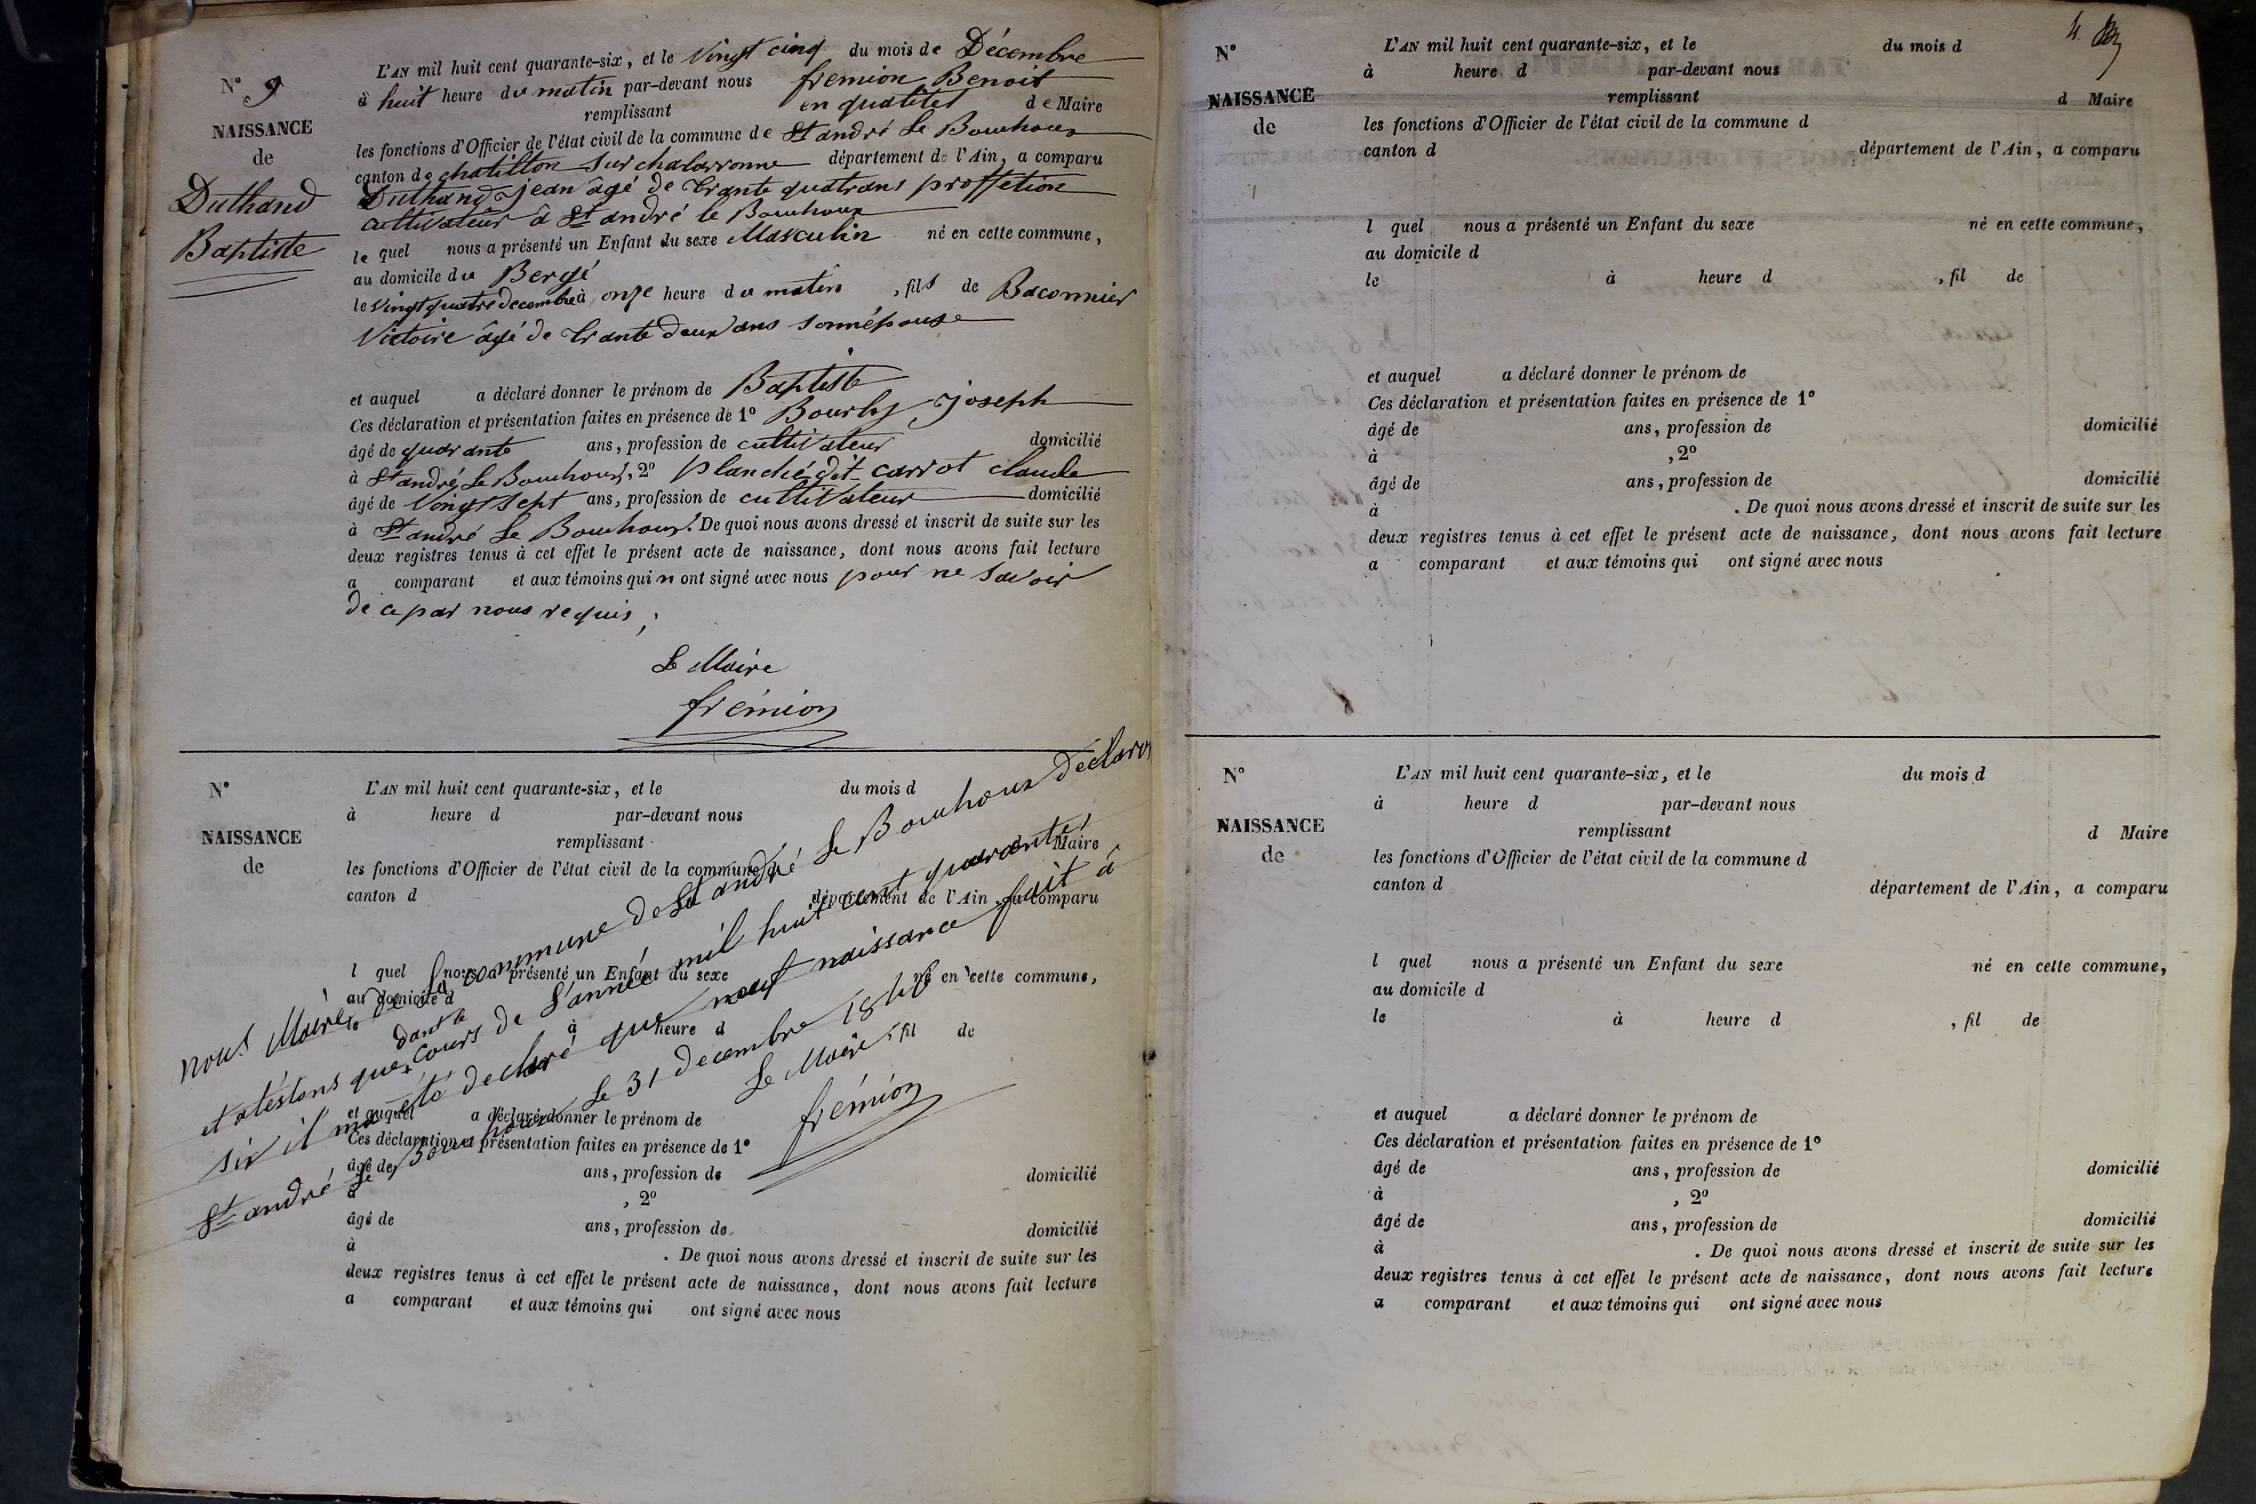 N° 9
NAISSANCE
de
Duthand
Baptiste
L'AN mil huit cent quarante-six, et le vingt cinq du mois de Décembre
à huit heure du matin par-devant nous fremion Benoit
remplissant en qualités de Maire
les fonctions d'Officier de l'état civil de la commune de St andré Le Bouchoux
canton de chatillon sur chalaronne département de l'Ain, a comparu
Duthand jean âgé de trante quatrans proffetion
cultivateur â St andré le Bouchoux
le quel nous a présenté un Enfant du sexe Masculin né en cette commune,
au domicile du Bergé
le vingt quatre decembre à onze heure du matin, fils de Baconnier
Victoire âgé de trante deux ans sonnépouse
et auquel a déclaré donner le prénom de Baptiste
Ces déclaration et présentation faites en présence de 1° joseph
âgé de quarante ans, profession de cultivateur domicilié
à St andré Le Bouchoux, 2° planché dit carrot claude
âgé de vingt sept ans, profession de cultivateur domicilié
à St andré Le Bouchoux. De quoi nous avons dressé et inscrit de suite sur les
deux registres tenus à cet effet le présent acte de naissance, dont nous avons fait lecture
a comparant et aux témoins qui n ont signé avec nous pour ne savoir
de ce par nous requis,
Le Maire
frémion
N°
NAISSANCE
de
L'AN mil huit cent quarante-six, et le du mois d
à heure d par-devant nous
remplissant Maire
les fonctions d'Officier de l'état civil de la commune d
canton d département de l'Ain, a comparu
l quel nous a présenté un Enfant du sexe né en cette commune,
au domicile d
le à heure d , fil de
et auquel a déclaré donner le prénom de
Ces déclaration et présentation faites en présence de 1°
âgé de ans, profession de domicilié
à , 2°
âgé de ans, profession de domicilié
à . De quoi nous avons dressé et inscrit de suite sur les
deux registres tenus à cet effet le présent acte de naissance, dont nous avons fait lecture
a comparant et aux témoins qui ont signé avec nous
nous Maire de la commune de St andré Le Bouchoux déclaron
et atéstons que dant le cours de l'année mil huit cent quarante
six il na été declaré que neuf naissance fait â
St andré Le Bouchoux Le 31 decembre 1846
Le Maire
frémion
4
N°
NAISSANCE
de
L'AN mil huit cent quarante-six, et le du mois d
à heure d par-devant nous
remplissant d Maire
les fonctions d'Officier de l'état civil de la commune d
canton d département de l'Ain, a comparu
l quel nous a présenté un Enfant du sexe né en cette commune,
au domicile d
le à heure d , fil de
et auquel a déclaré donner le prénom de
Ces déclaration et présentation faites en présence de 1°
âgé de ans, profession de domicilié
à , 2°
âgé de ans, profession de domicilié
à . De quoi nous avons dressé et inscrit de suite sur les
deux registres tenus à cet effet le présent acte de naissance, dont nous avons fait lecture
a comparant et aux témoins qui ont signé avec nous
N°
NAISSANCE
de
L'AN mil huit cent quarante-six, et le du mois d
à heure d par-devant nous
remplissant d Maire
les fonctions d'Officier de l'état civil de la commune d
canton d département de l'Ain, a comparu
l quel nous a présenté un Enfant du sexe né en cette commune,
au domicile d
le à heure d , fil de
et auquel a déclaré donner le prénom de
Ces déclaration et présentation faites en présence de 1°
âgé de ans, profession de domicilié
à , 2°
âgé de ans, profession de domicilié
à . De quoi nous avons dressé et inscrit de suite sur les
deux registres tenus à cet effet le présent acte de naissance, dont nous avons fait lecture
a comparant et aux témoins qui ont signé avec nous